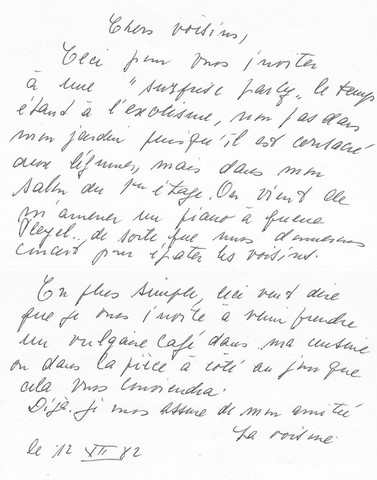 Chers voisins,
Ceci pour vous inviter
à une "surprise party", le temps
étant à l'exotisme, non pas dans
mon jardin puisqu'il est consacré
aux légumes, mais dans mon
salon du 1er étage. On vient de
m'amener un piano à queue
Pleyel.. de sorte que nous donnerons
concert pour épater les voisins.
En plus simple, ceci veut dire
que je vous invite à venir prendre
un vulgaire café dans ma cuisine
ou dans la pièce à côté au jour que
cela vous conviendra.
Déjà je vous assure de mon amitié
La voisine
le 12 XII 82